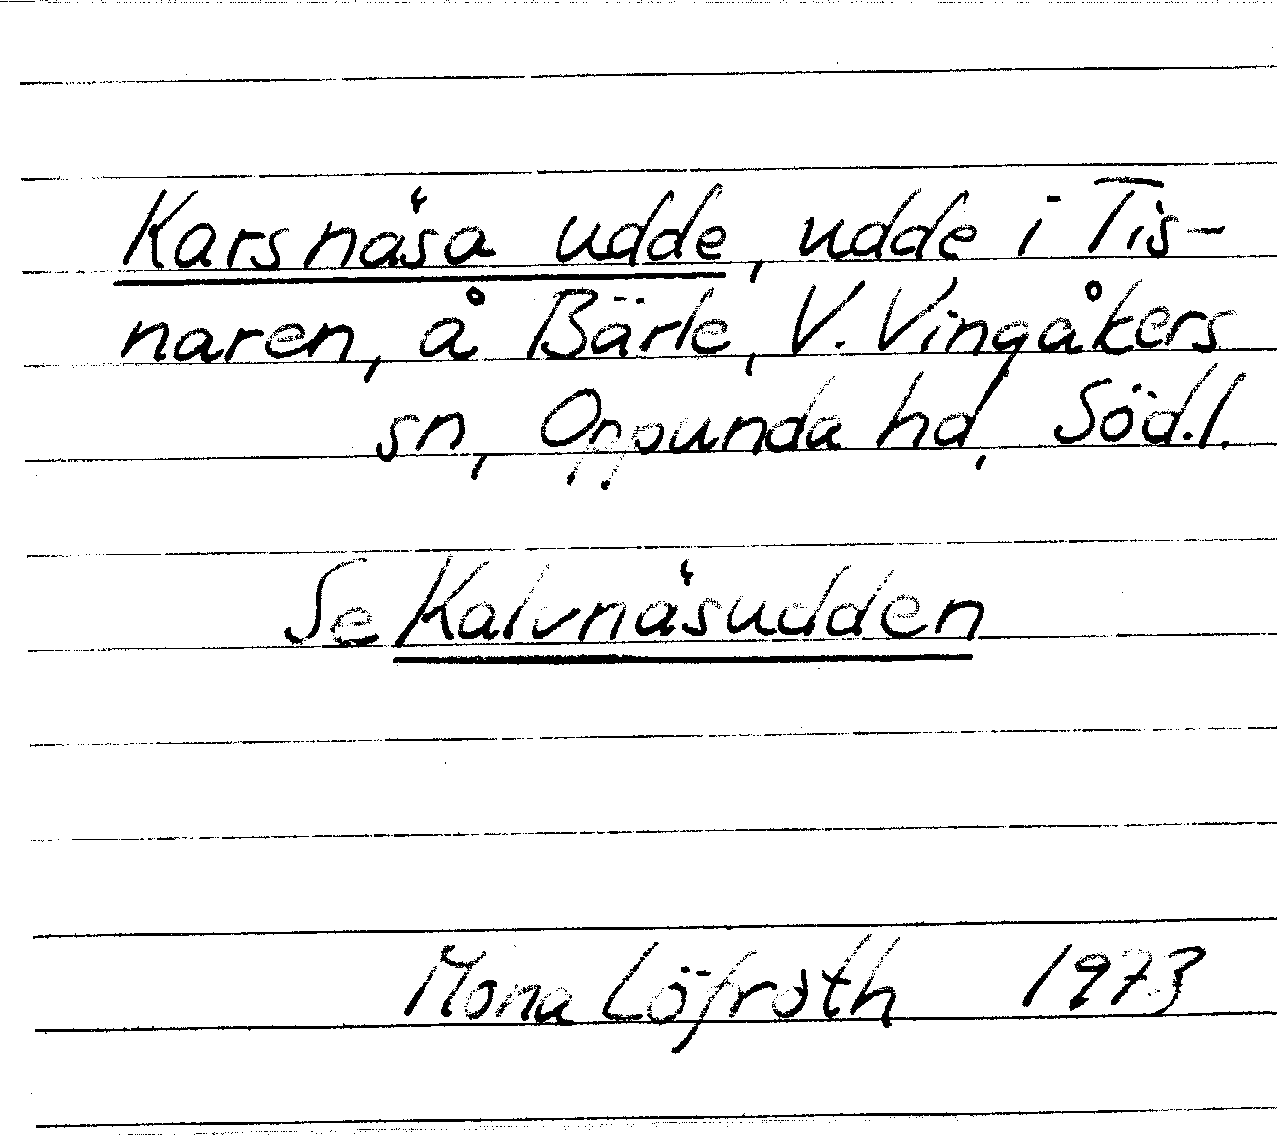 Karsnäsa udde, udde i Tis-
naren, å Bärle, V. Vingåkers
sn, Oppunda hd, Söd.l.
Se Kalvnäsudden
Mona Löfroth 1973